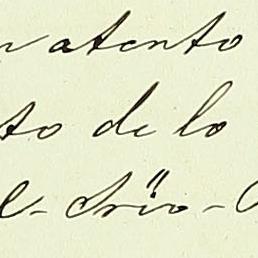 n atento
to de lo
l- Srio-